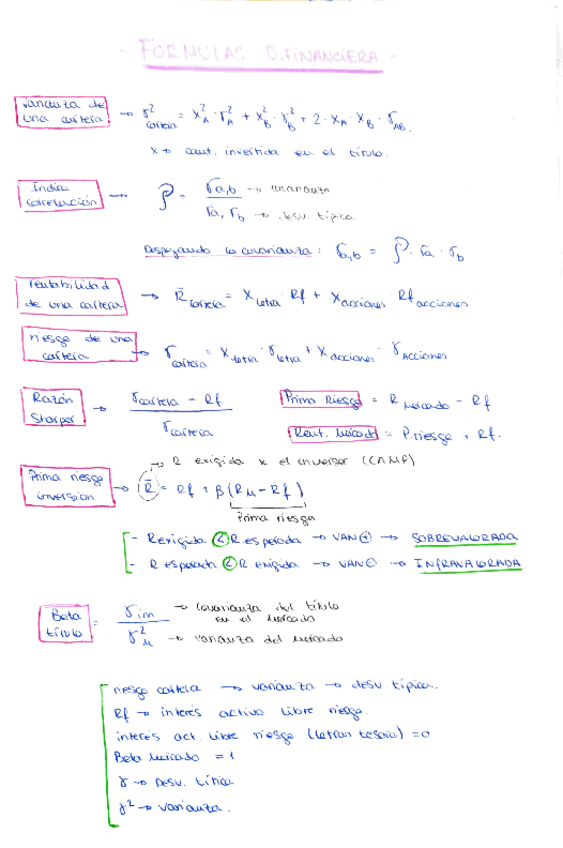 - FORMULAS D.FINANCIERA -
Varianza de una cartera → γ² cartera = X²A · γ²A + X²B · γ²B + 2 · XA XB · γAB.
X → cant. invertida en el título.
Índice correlación → ρ = σa,b / σa, σb
→ covarianza
→ desv. típica
Despejando la covarianza: σa,b = ρ · σa · σb
rentabilidad de una cartera → R̄ cartera = X letra · Rf + X acciones Rf acciones
riesgo de una cartera → γ cartera = X letra · γ letra + X acciones · γ Acciones
Razón Sharper → r cartera - Rf / γ cartera
Prima Riesgo = R Mercado - Rf
Rent. Mercado = P.riesgo + Rf.
→ R exigida x el inversor (CAMP)
Prima riesgo inversion → R̄ = Rf + β (RM - Rf)
Prima riesgo
- R exigida < R esperada → VAN ⊕ → SOBREVALORADA
- R esperada < R exigida → VAN ⊖ → INFRAVALORADA
Beta título = γim / γ²M
→ covarianza del título en el mercado
→ varianza del mercado
riesgo cartera → varianza → desv. típica.
Rf → interés activo libre riesgo.
interés act. libre riesgo (letran tesoro) = 0
Beta mercado = 1
γ → Desv. típica
γ² → varianza.